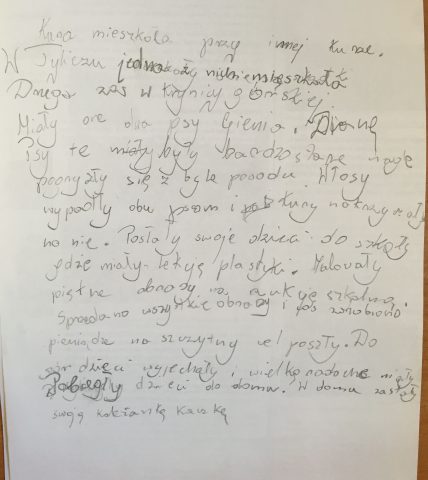 Kura mieszkała przy innej kurze.
W Tyliczu jedna z nich mieszkała
Druga zaś w Krynicy górskiej.
Miały one dwa psy Gienia. Dianę
Psy te miały były bardzo stare nagle
pogryzły się z byle powodu Włosy
wypadły obu psom i kury nakrzyczały
na nie. Posłały swoje dzieci do szkoły
gdzie miały lekcję plastyki. Malowały
piękne obrazy na aukcję szkolną.
Sprzedano wszystkie obrazy i zarobiono
pieniądze na szczytny cel poszły. Do
dzieci wyjechały i wielką radochę miały
Pobiegły dzieci do domu. W domu zastały
swoją kochaną Kawkę